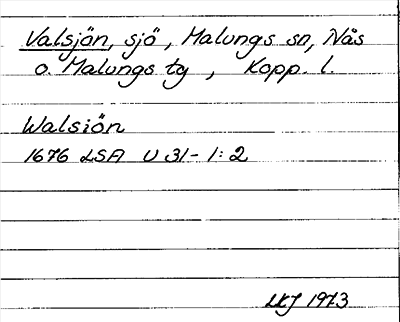 Valsjön, sjö, Malungs sn, Nås
o. Malungs tg, Kopp. l.
Walsiön
1676 LSA U 31-1:2
1973